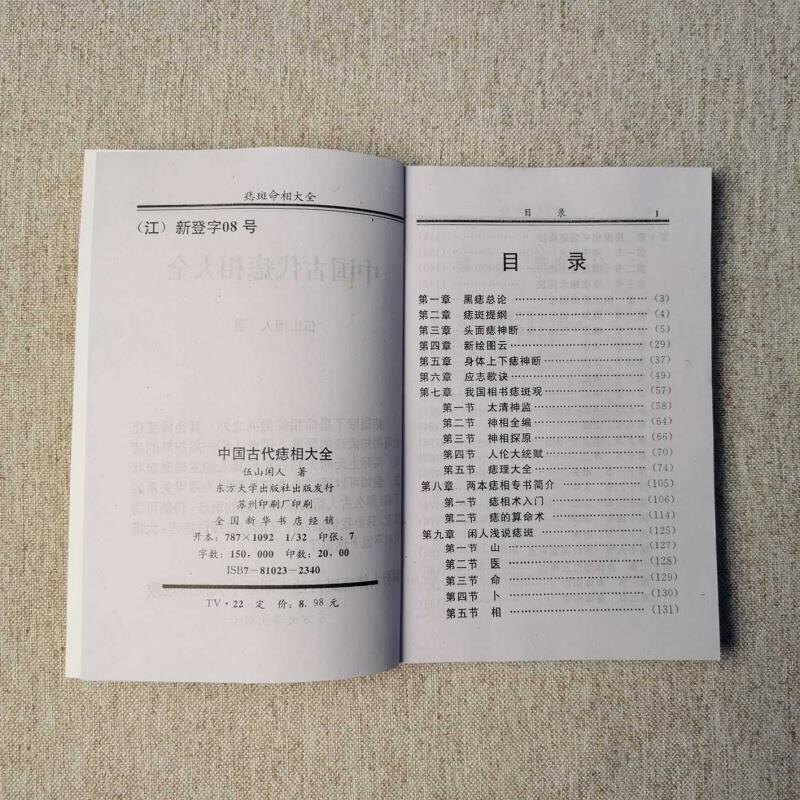 痣斑命相大全
（江）新登字08 号
中国古代痣相大全
伍山闲人 著
东方大学出版社出版发行
苏州印刷厂印刷
全国新华书店经销
开本：787×1092 1/32 印张：7
字数：150，000 印数：20，00
ISB7－81023－2340
TV·22 定 价：8．98 元
目 录 1
目 录
第一章 黑痣总论 ……………………………（3）
第二章 痣斑提纲 ……………………………（4）
第三章 头面痣神断 …………………………（5）
第四章 新绘图云 ……………………………（29）
第五章 身体上下痣神断 ……………………（37）
第六章 应志歌诀 ……………………………（49）
第七章 我国相书痣斑观 ……………………（57）
第一节 太清神监 ……………………………（58）
第二节 神相全编 ……………………………（64）
第三节 神相探原 ……………………………（66）
第四节 人伦大统赋 …………………………（70）
第五节 痣理大全 ……………………………（74）
第八章 两本痣相专书简介 …………………（105）
第一节 痣相术入门 …………………………（106）
第二节 痣的算命术 …………………………（114）
第九章 闲人浅说痣斑 ………………………（125）
第一节 山 ……………………………………（127）
第二节 医 ……………………………………（128）
第三节 命 ……………………………………（129）
第四节 卜 ……………………………………（130）
第五节 相 ……………………………………（131）